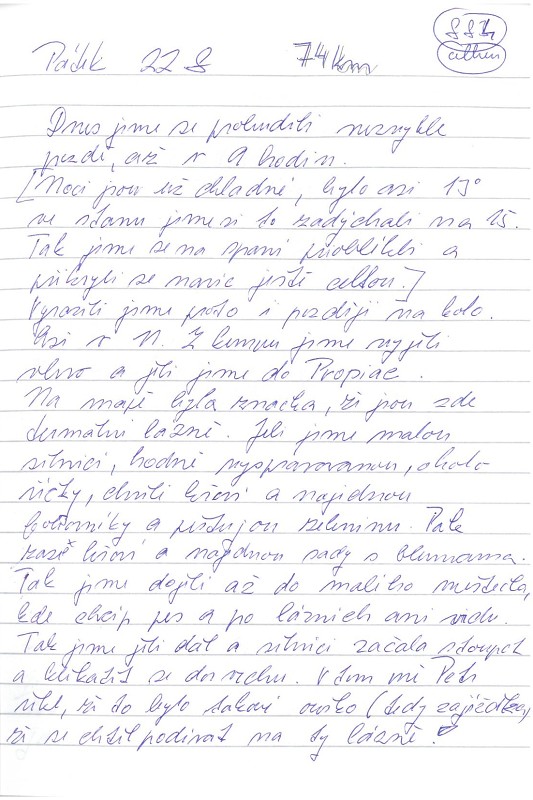 Pátek 22 8 74 km
Dnes jsme se probudili nezvykle
pozdě, až v 9 hodin.
[Noci jsou už chladné, bylo asi 13°
ve stanu jsme si to zadýchali na 15.
Tak jsme se na spaní převlékli a
přikryli se navíc ještě celtou.]
Vyrazili jsme proto i později na kolo.
Asi v 11. Z kempu jsme vyjeli
vlevo a jeli jsme do Propiac.
Na mapě byla značka, že jsou zde
termální lázně. Jeli jsme malou
silnicí, hodně vyspravovanou, okolo
říčky, chvíli křoví a najednou
a pěstujou zeleninu. Pak
zase křoví a najednou sady s blumama.
Tak jsme dojeli až do malého městečka,
kde chcíp pes a po lázních ani vidu.
Tak jsme jeli dál a silnice začala stoupat
a klikatit se do vrchu. V tom mi Petr
řekl, že to bylo takové (tedy zajížďka),
že se chtěl podívat na ty lázně.